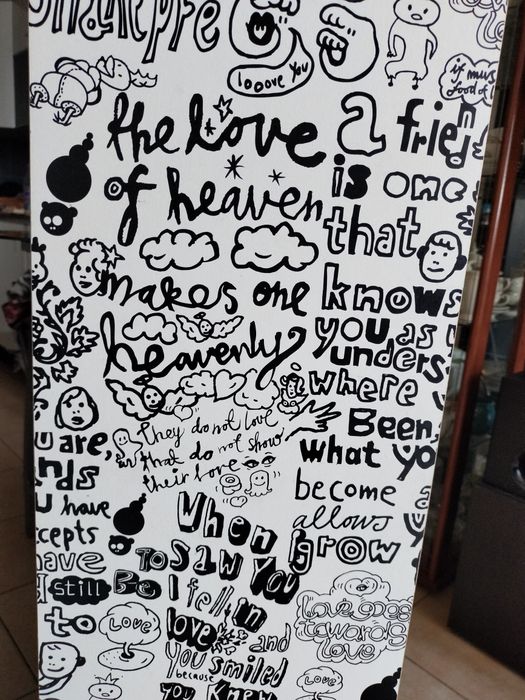 looove you
if mus
food of
the love
of heaven
makes one
heavenly
a friend
is one
that
knows
you as
unders
where
Been,
what yo
become
allows
grow
they do not love
that do not show
their love
u are,
nds
u have
cepts
have
still
to
When
I saw you
I fell in
love and
you smiled
because
you knew
TO
Be
Love
Love goes
towards
love
love